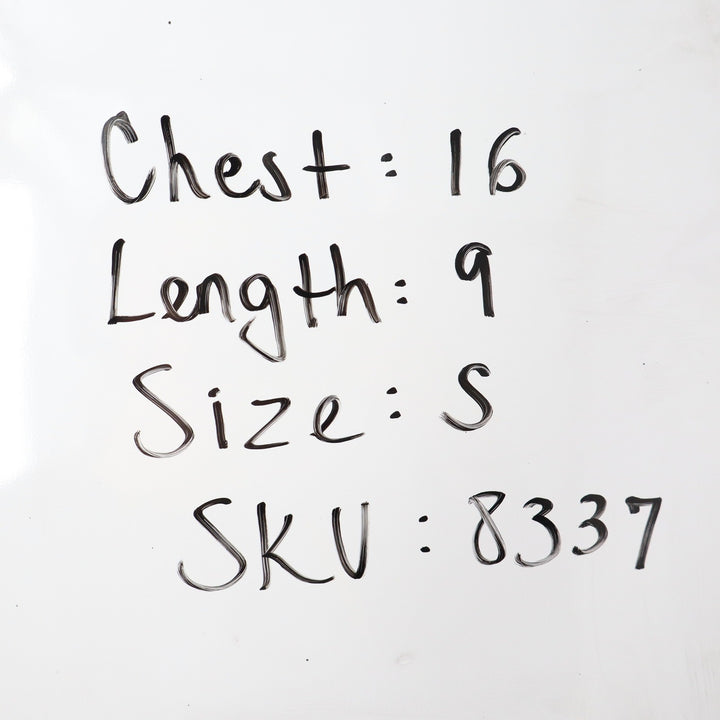 Chest: 16
Length: 9
Size: S
SKU: 8337